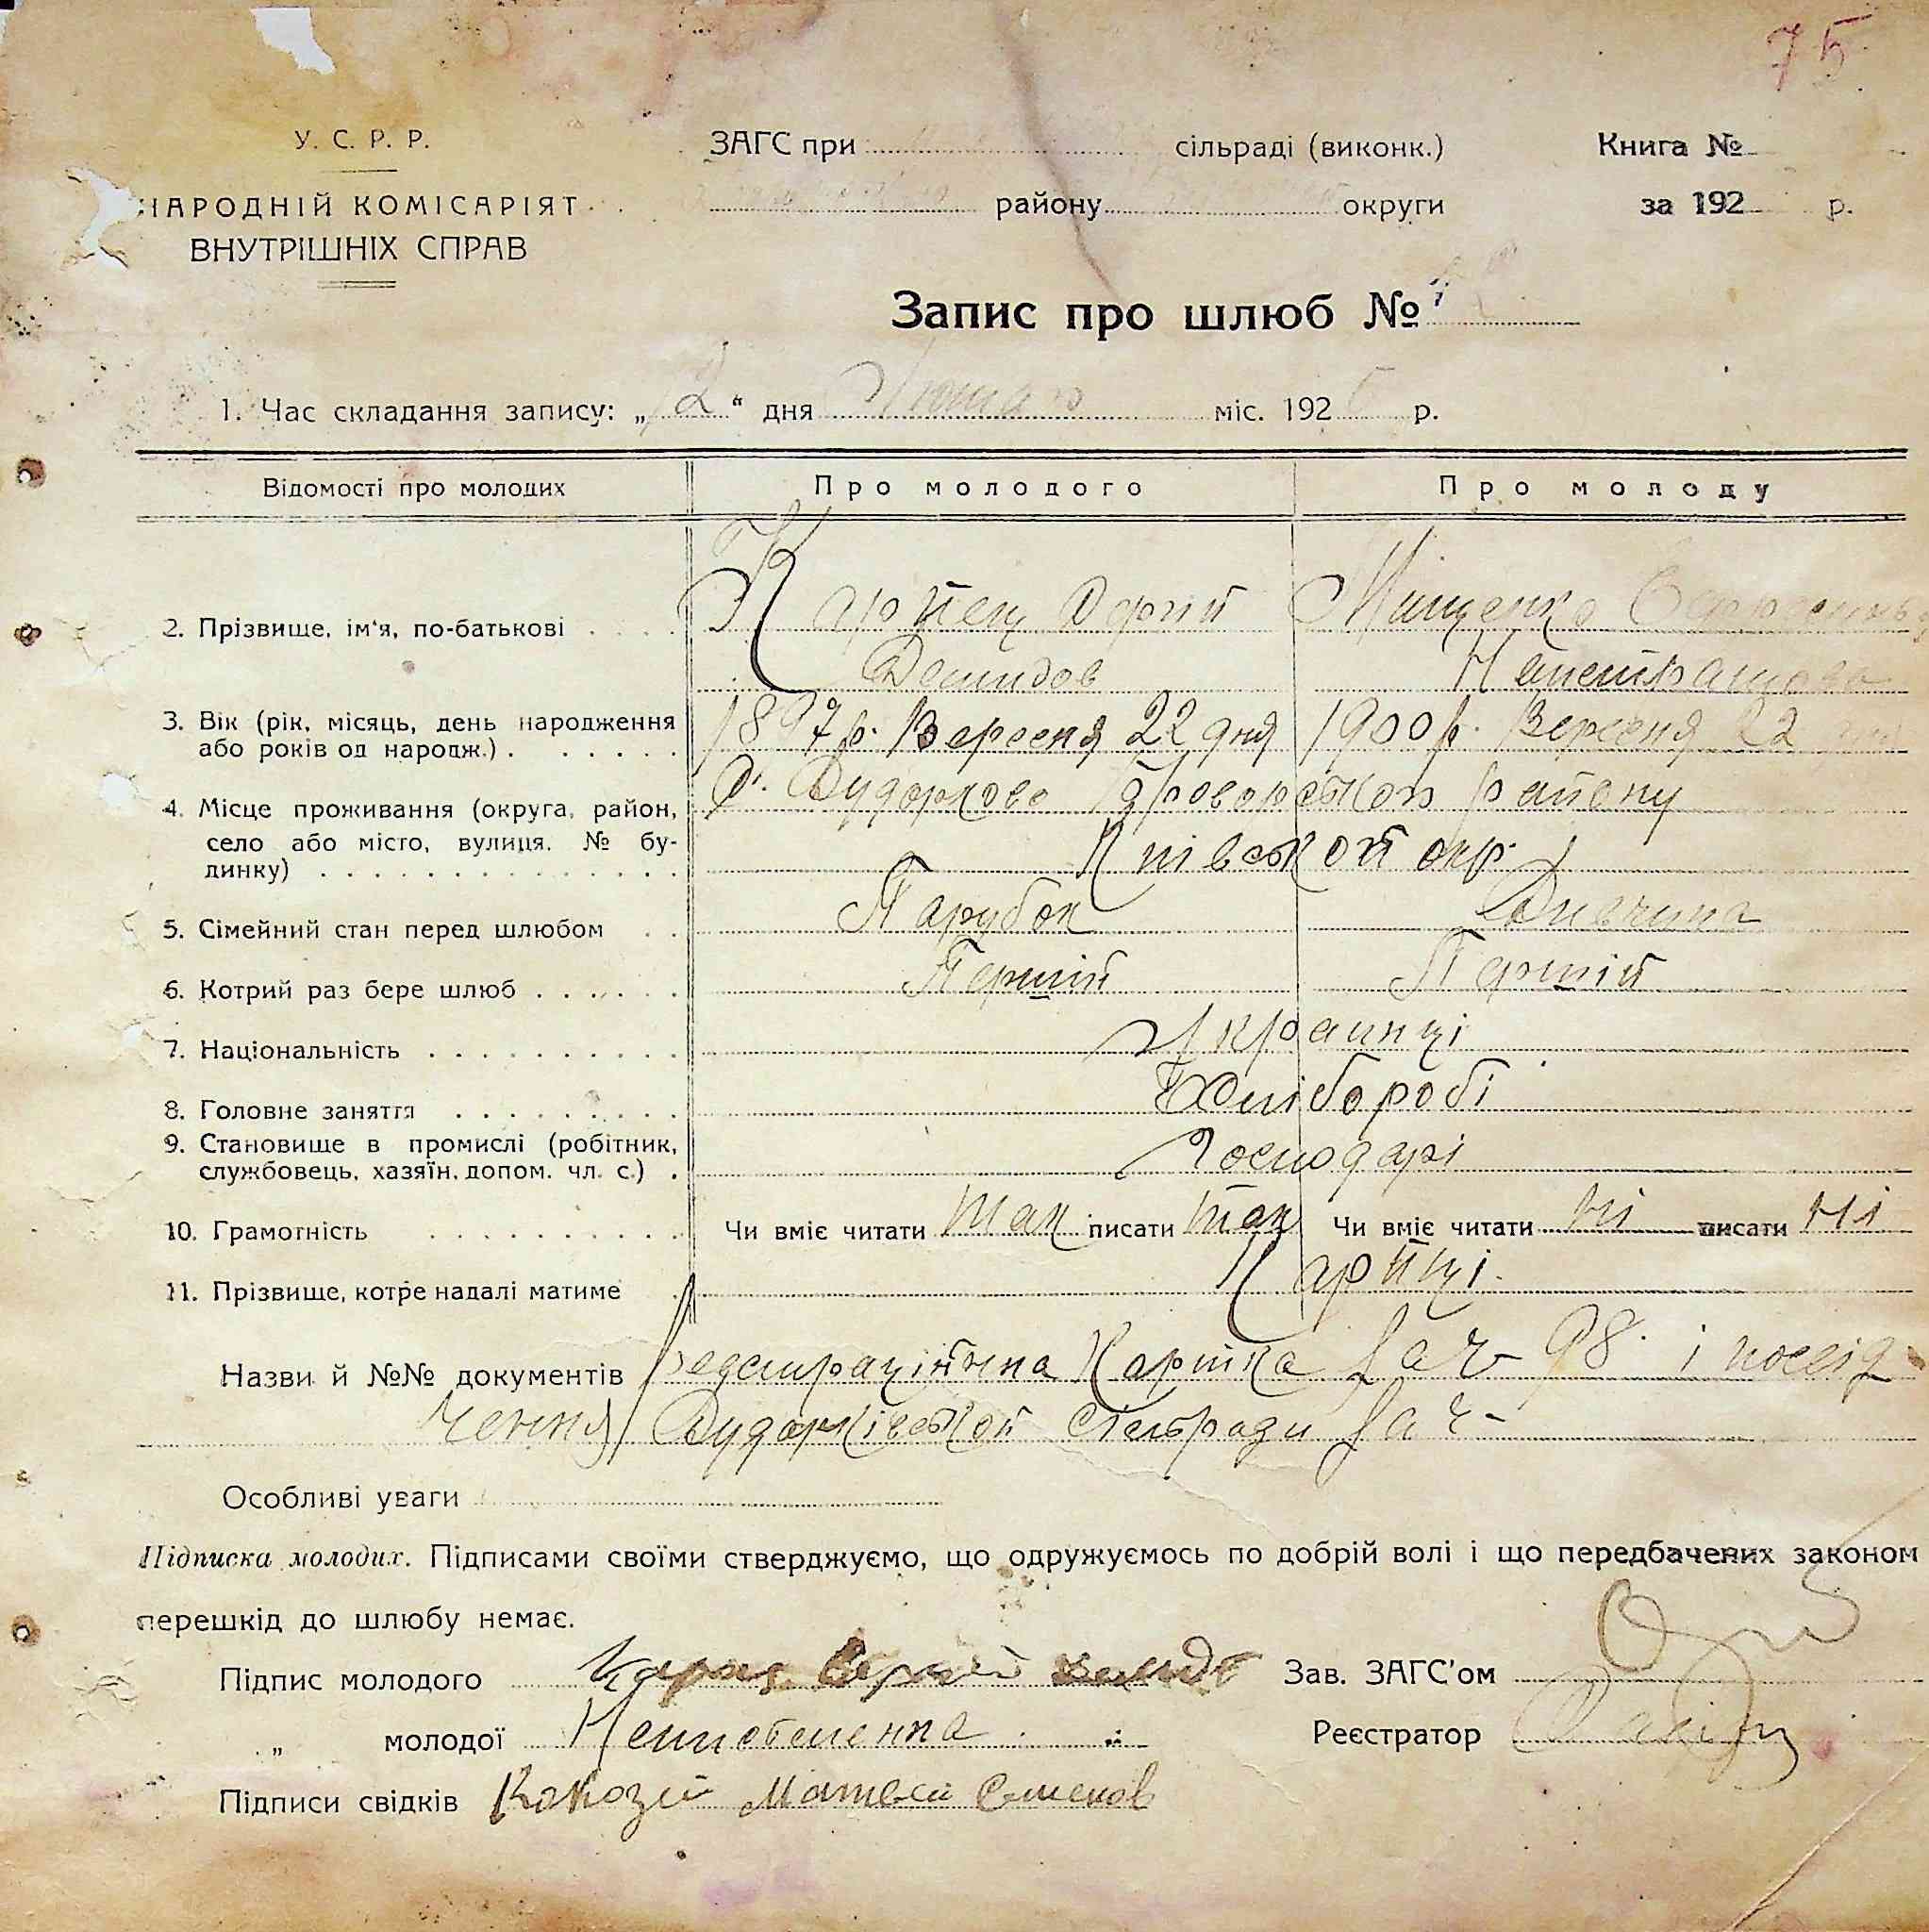 75
У. С. Р. Р.
НАРОДНІЙ КОМІСАРІЯТ
ВНУТРІШНІХ СПРАВ
ЗАГС при сільраді (виконк.)
району округи
Книга №
за 192 р.
Запис про шлюб №
1. Час складання запису: „12“ дня Лютаго міс. 192 р.
Відомості про молодих Про молодого Про молоду
2. Прізвище, ім‘я, по-батькові Карпец Мищенко
Демидов
3. Вік (рік, місяць, день народження 1897 р. Вересня 22 дня 1900 р. Вересня 22 дня
або років од народж.)
4. Місце проживання (округа, район, С. Дударково Броворськой району
село або місто, вулиця. № бу-
динку) Київськой окр.
5. Сімейний стан перед шлюбом Парубок Дивчина
6. Котрий раз бере шлюб Перший Перший
7. Національність Украинці
8. Головне заняття Хлібороби
9. Становище в промислі (робітник,
службовець, хазяїн, допом. чл. с.) Господарі
10. Грамотність Чи вміє читати так писати так Чи вміє читати ні писати ні
11. Прізвище, котре надалі матиме Карпці
Назви й №№ документів картка за ч- 98 і посвід
чення Дударківськой сільради за ч-
Особливі уваги
Підписка молодих. Підписами своїми стверджуємо, що одружуємось по добрій волі і що передбачених законом
перешкід до шлюбу немає.
Підпис молодого Карпец Сергий Зав. ЗАГС’ом
„ молодої Неписьменна Реєстратор
Підписи свідків Матвей Семенов